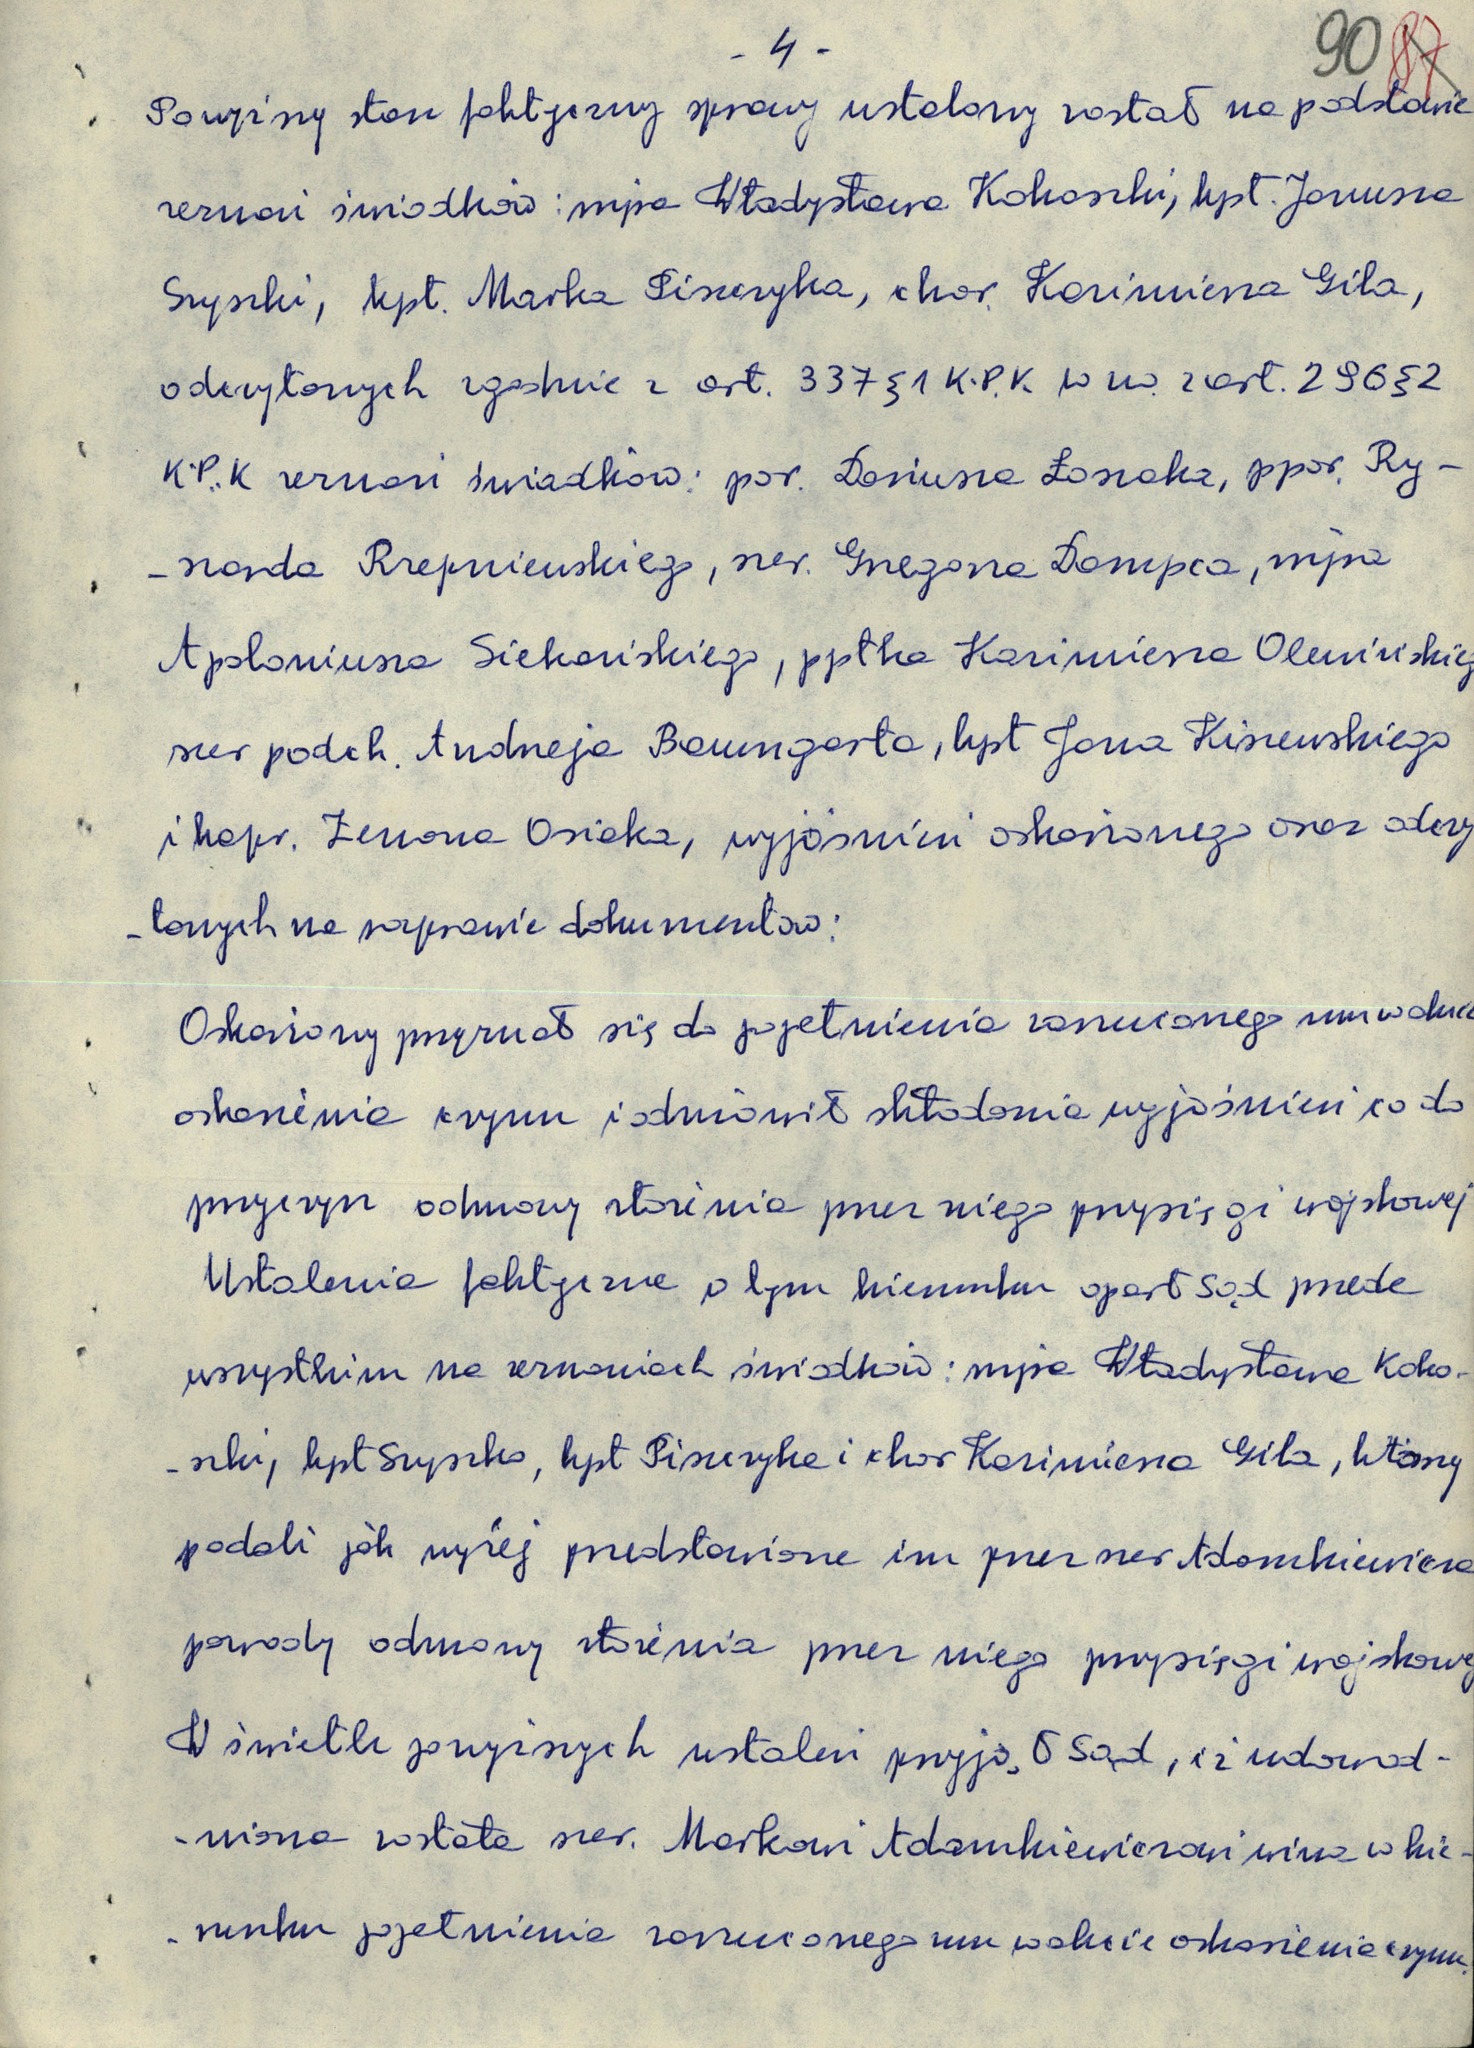 - 4 -
90 87
Powyższy stan faktyczny sprawy ustalony został na podstawie
zeznań świadków: mjra Władysława Kokoszki, kpt. Janusza
Szyszki, kpt. Marka Piszczyka, chor. Kazimierza Gila,
odczytanych zgodnie z art. 337 § 1 K.P.K. w zw. z art. 296 § 2
K.P.K zeznań świadków: por. Dariusza Łoszaka, ppor. Ry-
-szarda Rzepniewskiego, szer. Grzegorza Dampca, mjra
Apoloniusza Siekańskiego, ppłka Kazimierza Olewińskieg
szer podch. Andrzeja Baumgarta, kpt Jana Kiszewskiego
i kapr. Zenona Osiaka, wyjaśnień oskarżonego oraz odczy
-tanych na rozprawie dokumentów:
Oskarżony przyznał się do popełnienia zarzucanego mu w akcie
oskarżenia czynu i odmówił składania wyjaśnień co do
przyczyn odmowy złożenia przez niego przysięgi wojskowej
Ustalenia faktyczne w tym kierunku oparł Sąd przede
wszystkim na zeznaniach świadków: mjra Władysława Koko-
-szki, kpt Szyszko, kpt Piszczyka i chor Kazimierza Gila, którzy
podali jak wyżej przedstawione im przez szer Adamkiewicza
powody odmowy złożenia przez niego przysięgi wojskowej
W świetle powyższych ustaleń przyjął Sąd, iż udowod-
-niona została szer. Markowi Adamkiewiczowi wina w kie-
-runku popełnienia zarzucanego mu w akcie oskarżenia czynu.